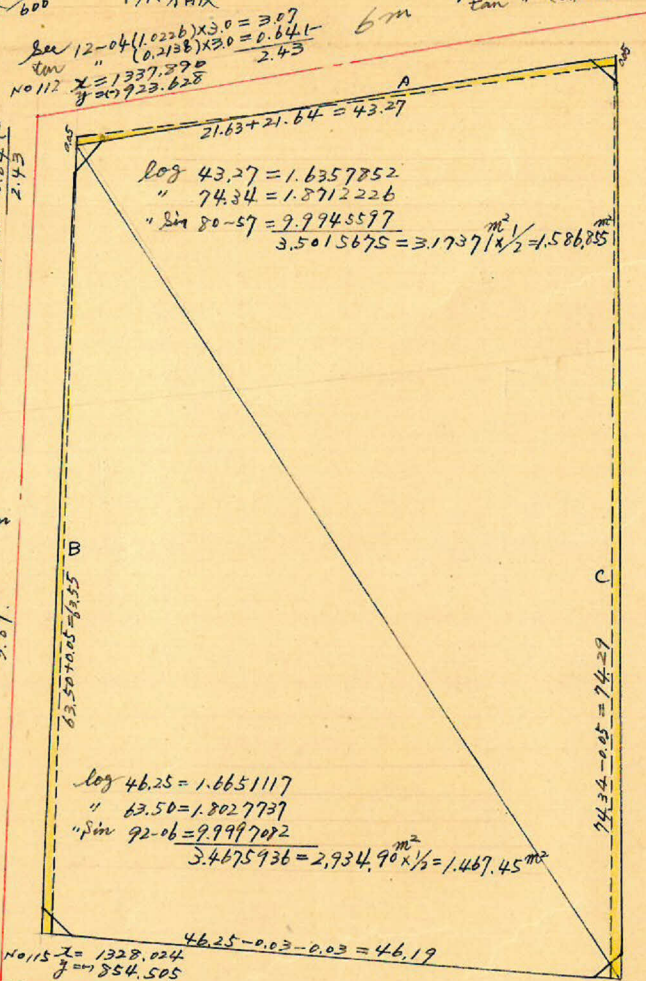 /600
6m
tan
Sec 12-04(1.0226)×3.0=3.07
tan " (0.2138)×3.0=0.641
2.43
No112 x=1337.890
y=(-)923.628
0.05
A
0.05
21.63+21.64=43.27
2.43
log 43.27=1.6357852
" 74.34=1.8712226
" Sin 80-57=9.9945597
3.5015675=3.1737/m²×1/2=1.586.855m²
B
63.50+0.05=63.55
C
74.34-0.05=74.29
log 46.25=1.6651117
" 63.50=1.8027737
" Sin 92-06=9.9997082
3.4675936=2,934.90m²×1/2=1.467.45m²
46.25-0.03-0.03=46.19
No115 x=1328.024
y=(-)854.505